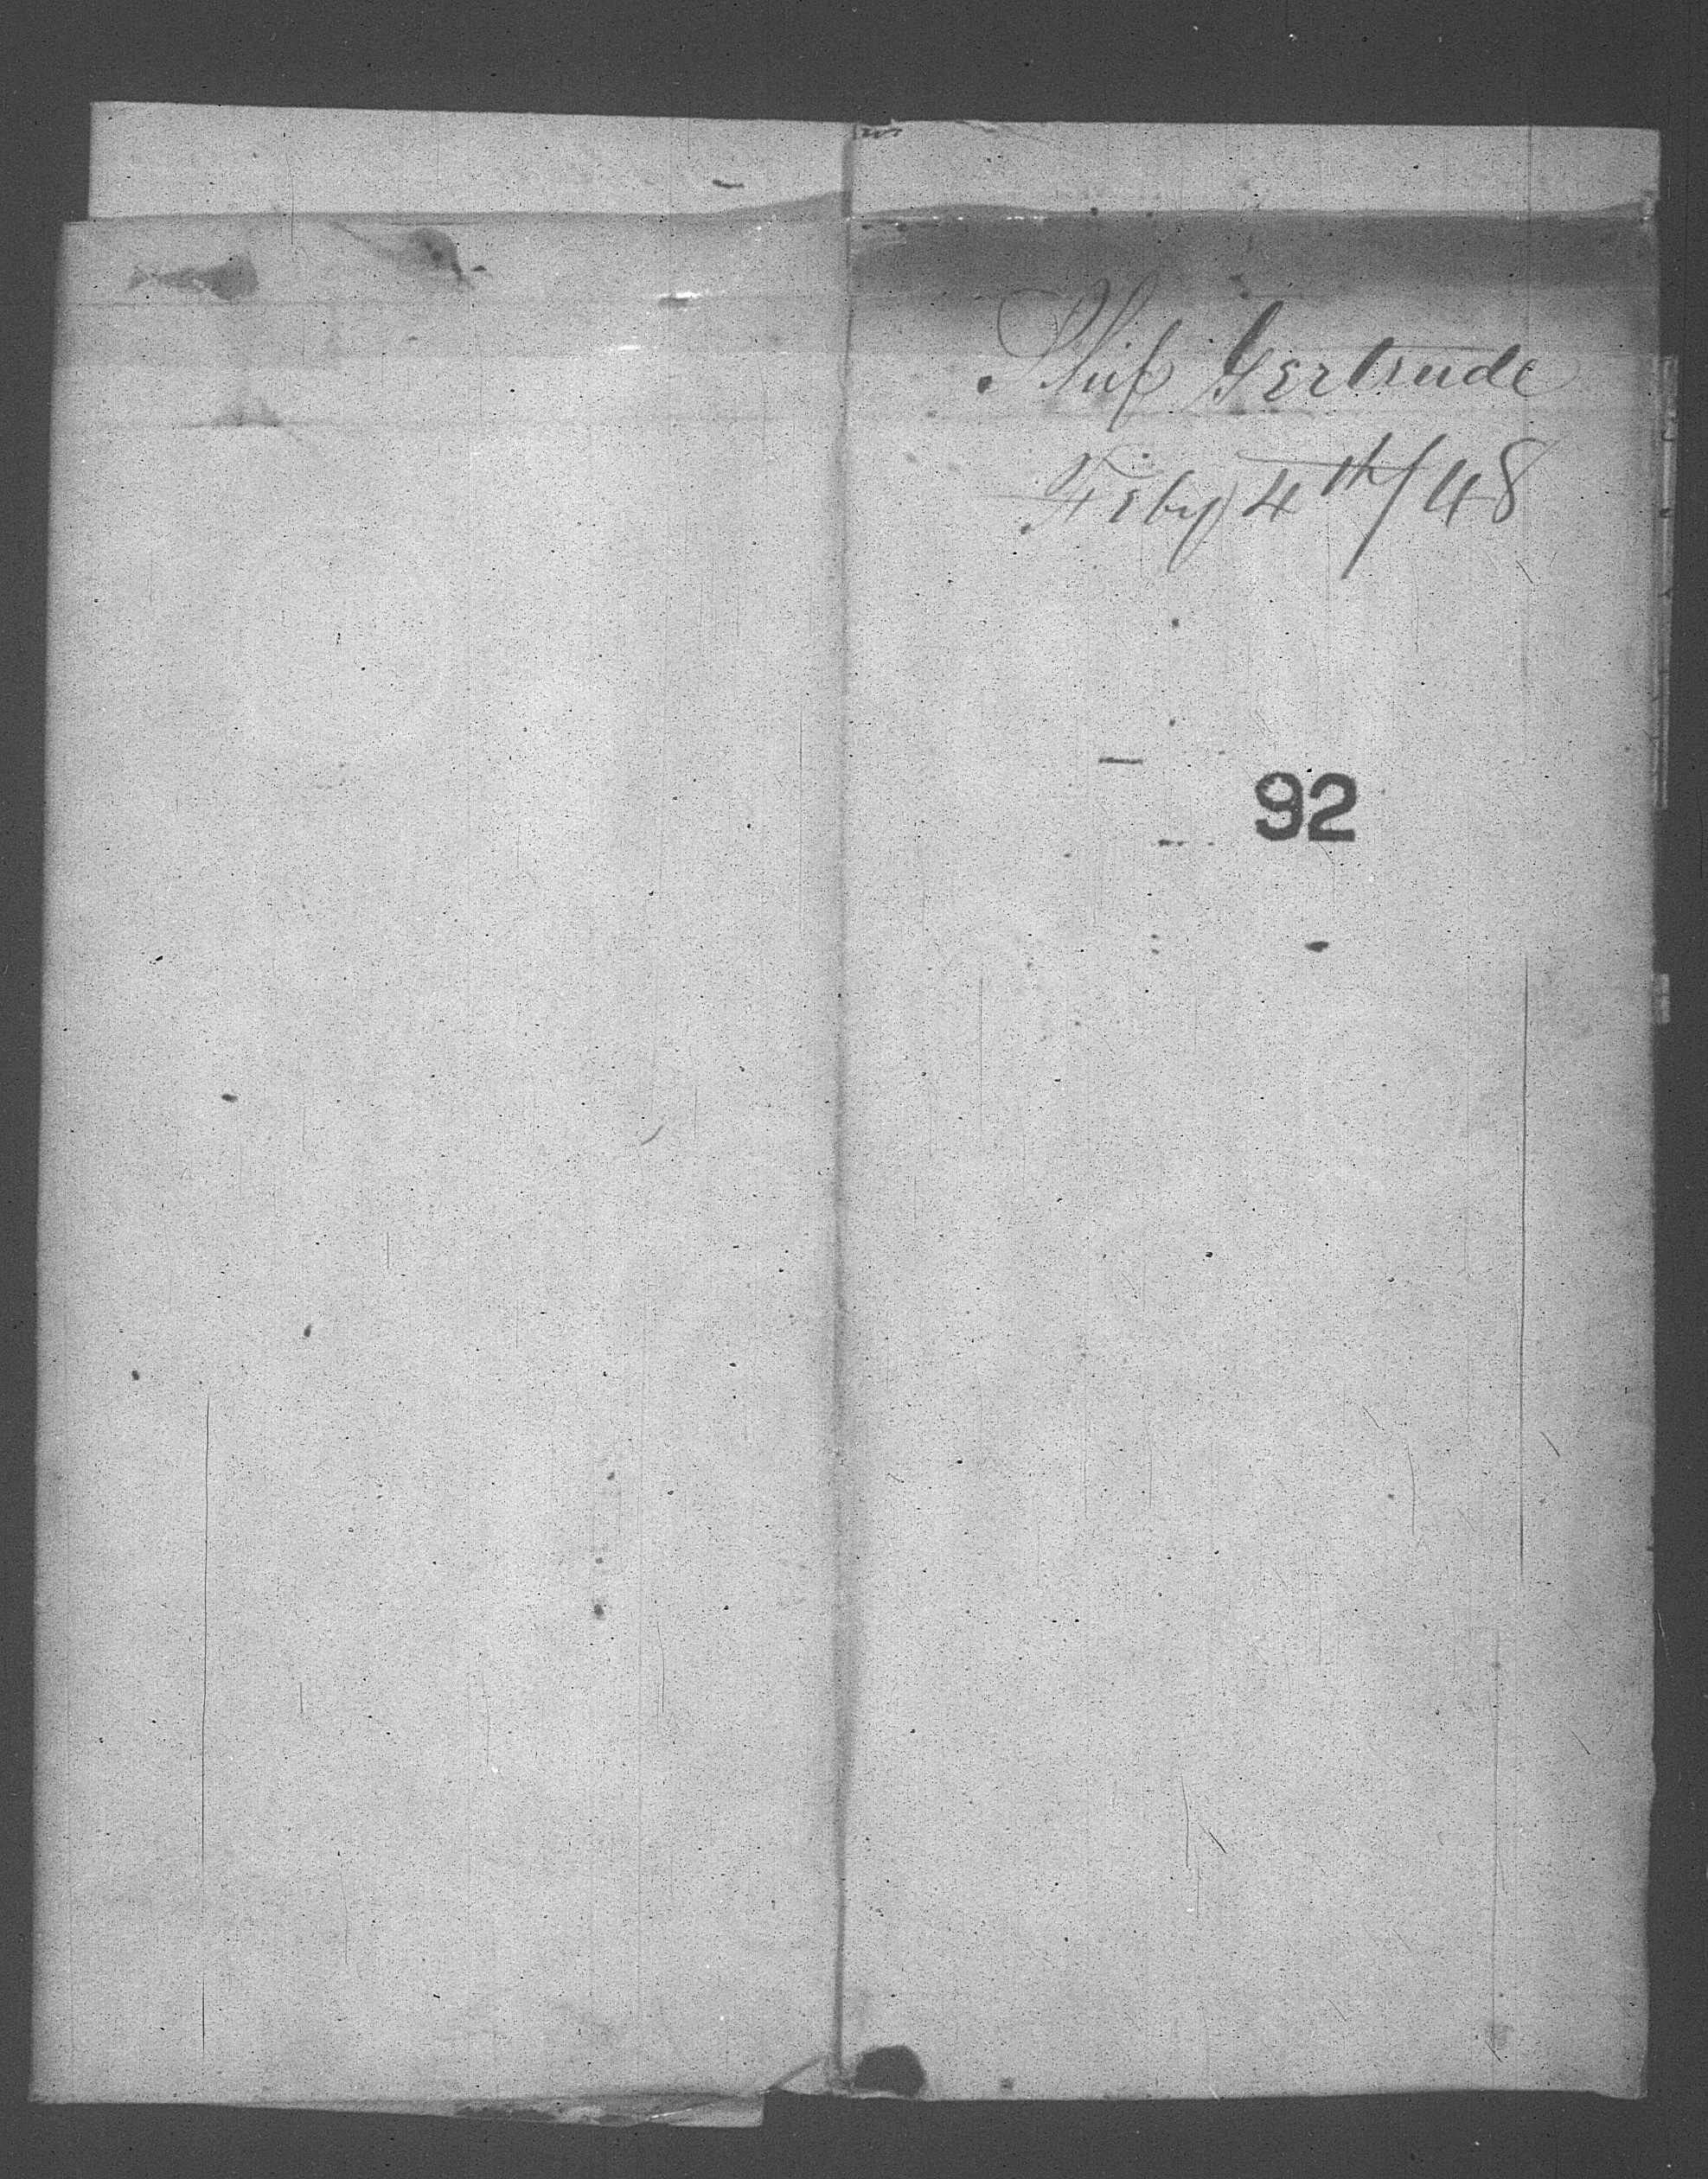 Ship Gertrude
Feby 4th/48
92